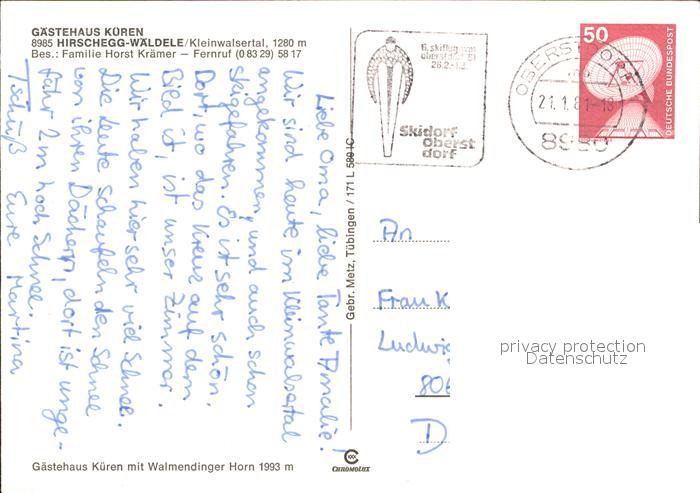 GÄSTEHAUS KÜREN
8985 HIRSCHEGG-WÄLDELE/Kleinwalsertal, 1280 m
Bes.: Familie Horst Krämer – Fernruf (0 83 29) 58 17
Liebe Oma, liebe Tante Amalie!
Wir sind heute im Kleinwalsertal
angekommen, und auch schon
skigefahren. Es ist sehr schön.
Dort, wo das Kreuz auf dem
Bild ist, ist unser Zimmer.
Wir haben hier sehr viel Schnee.
Die Leute schaufeln den Schnee
von ihren Dächern, dort ist unge-
fähr 2 m hoch Schnee.
Tschüß Eure Martina
Gästehaus Küren mit Walmendinger Horn 1993 m
Gebr. Metz, Tübingen / 171 L 5891C
CHROMOLUX
6. skiflug-wm
oberstdorf 81
26.2.-1.3.
Skidorf
Oberst
dorf
OBERSTDORF
21.1.81-18
8980
50
DEUTSCHE BUNDESPOST
An
Frau K
Ludwig
806
D
privacy protection
Datenschutz